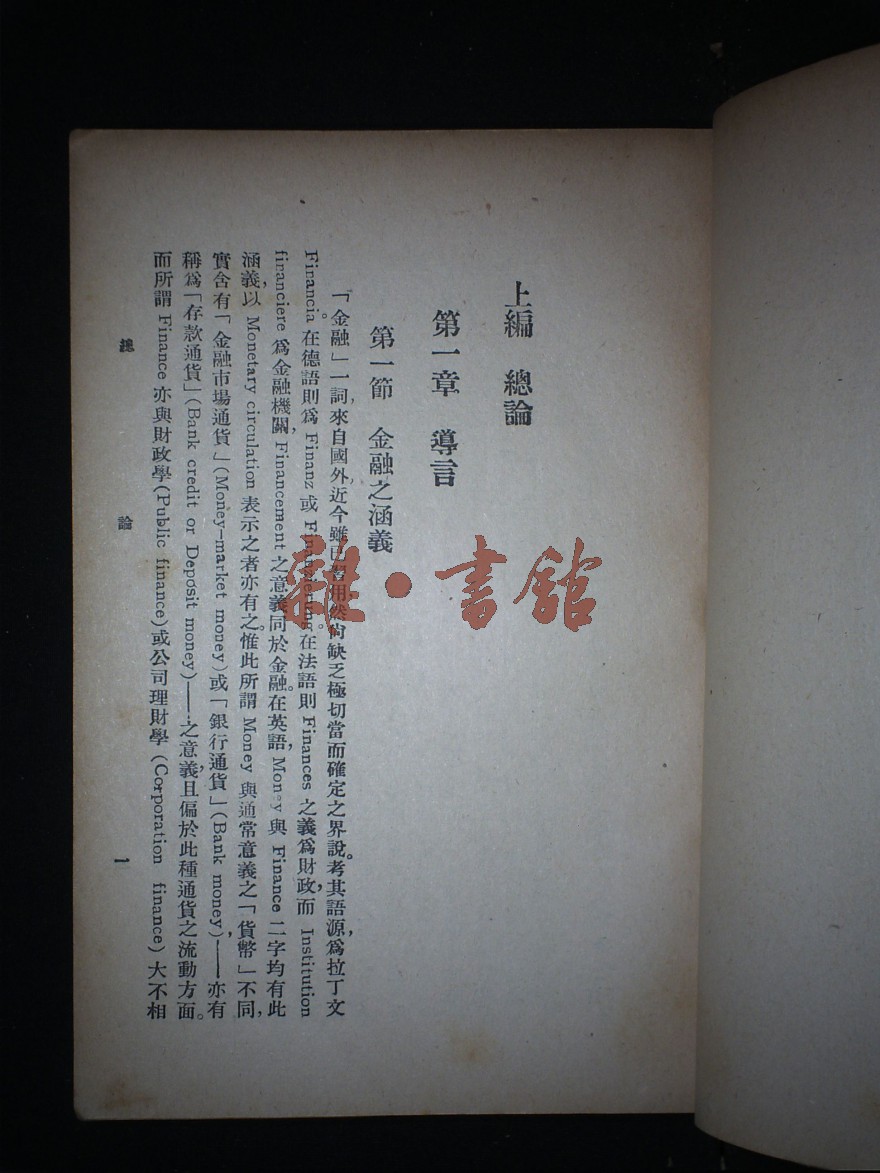 上編　總論
第一章　導言
第一節　金融之涵義
「金融」一詞，來自國外，近今雖已習用，然尚缺乏極切當而確定之界說。考其語源，爲拉丁文
Financia。在德語則爲 Finanz 或 Finanzierung。在法語則 Finances 之義爲財政，而 Institution
financiere 爲金融機關，Financement 之意義同於金融。在英語，Money 與 Finance 二字均有此
涵義，以 Monetary circulation 表示之者亦有之。惟此所謂 Money 與通常意義之「貨幣」不同，
實含有「金融市場通貨」(Money-market money)或「銀行通貨」(Bank money)——亦有
稱爲「存款通貨」(Bank credit or Deposit money)——之意義，且偏於此種通貨之流動方面。
而所謂 Finance 亦與財政學(Public finance)或公司理財學(Corporation finance)大不相
總　論　一
雜·書館